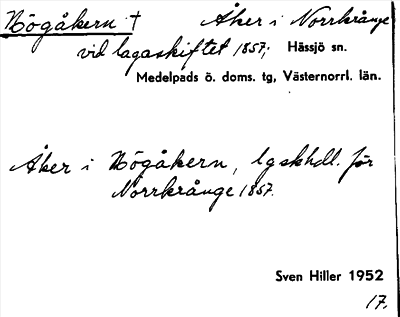 Högåkern † Åker i Norrkrånge
vid lagaskiftet 1857; Hässjö sn.
Medelpads ö. doms. tg, Västernorrl. län.
Åker i Högåkern, lgskhdl. för
Norrkrånge 1857.
Sven Hiller 1952
17.